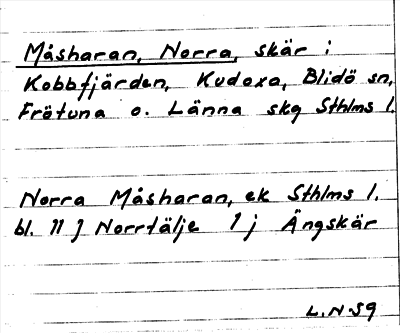 Måsharan, Norra, skär i
Kobbfjärden, Kudoxa, Blidö sn,
Frötuna o. Länna skg Sthlms l.
Norra Måsharan, ek Sthlms l.
bl. 11 J Norrtälje 1 j Ängskär
L.N-59